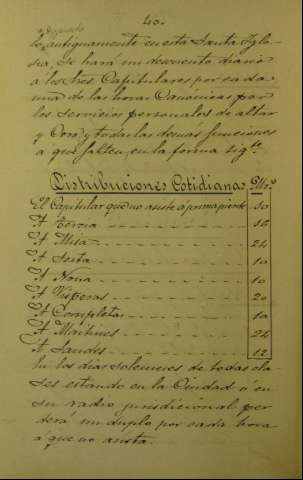 40.
lo antiguamente en esta Santa Igle-
sia, se hará un descuento diario
a los Sres. Capitulares por cada
una de las horas Canónicas por
los servicios personales de altar
y Coro y todas las demás funciones
a que falten, en la forma sigte.
Distribuciones Cotidianas
El Capitular que no asiste a prima pierde 30
A Tercia 16
A Misa 24
A Sexta 10
A Nona 10
A Vísperas 20
A Completas 10
A Maitines 24
A Laudes 12
En los días solemnes de todas cla-
ses estando en la Ciudad ó en
su radio jurisdiccional per
derá un duplo por cada hora
á que no asista.